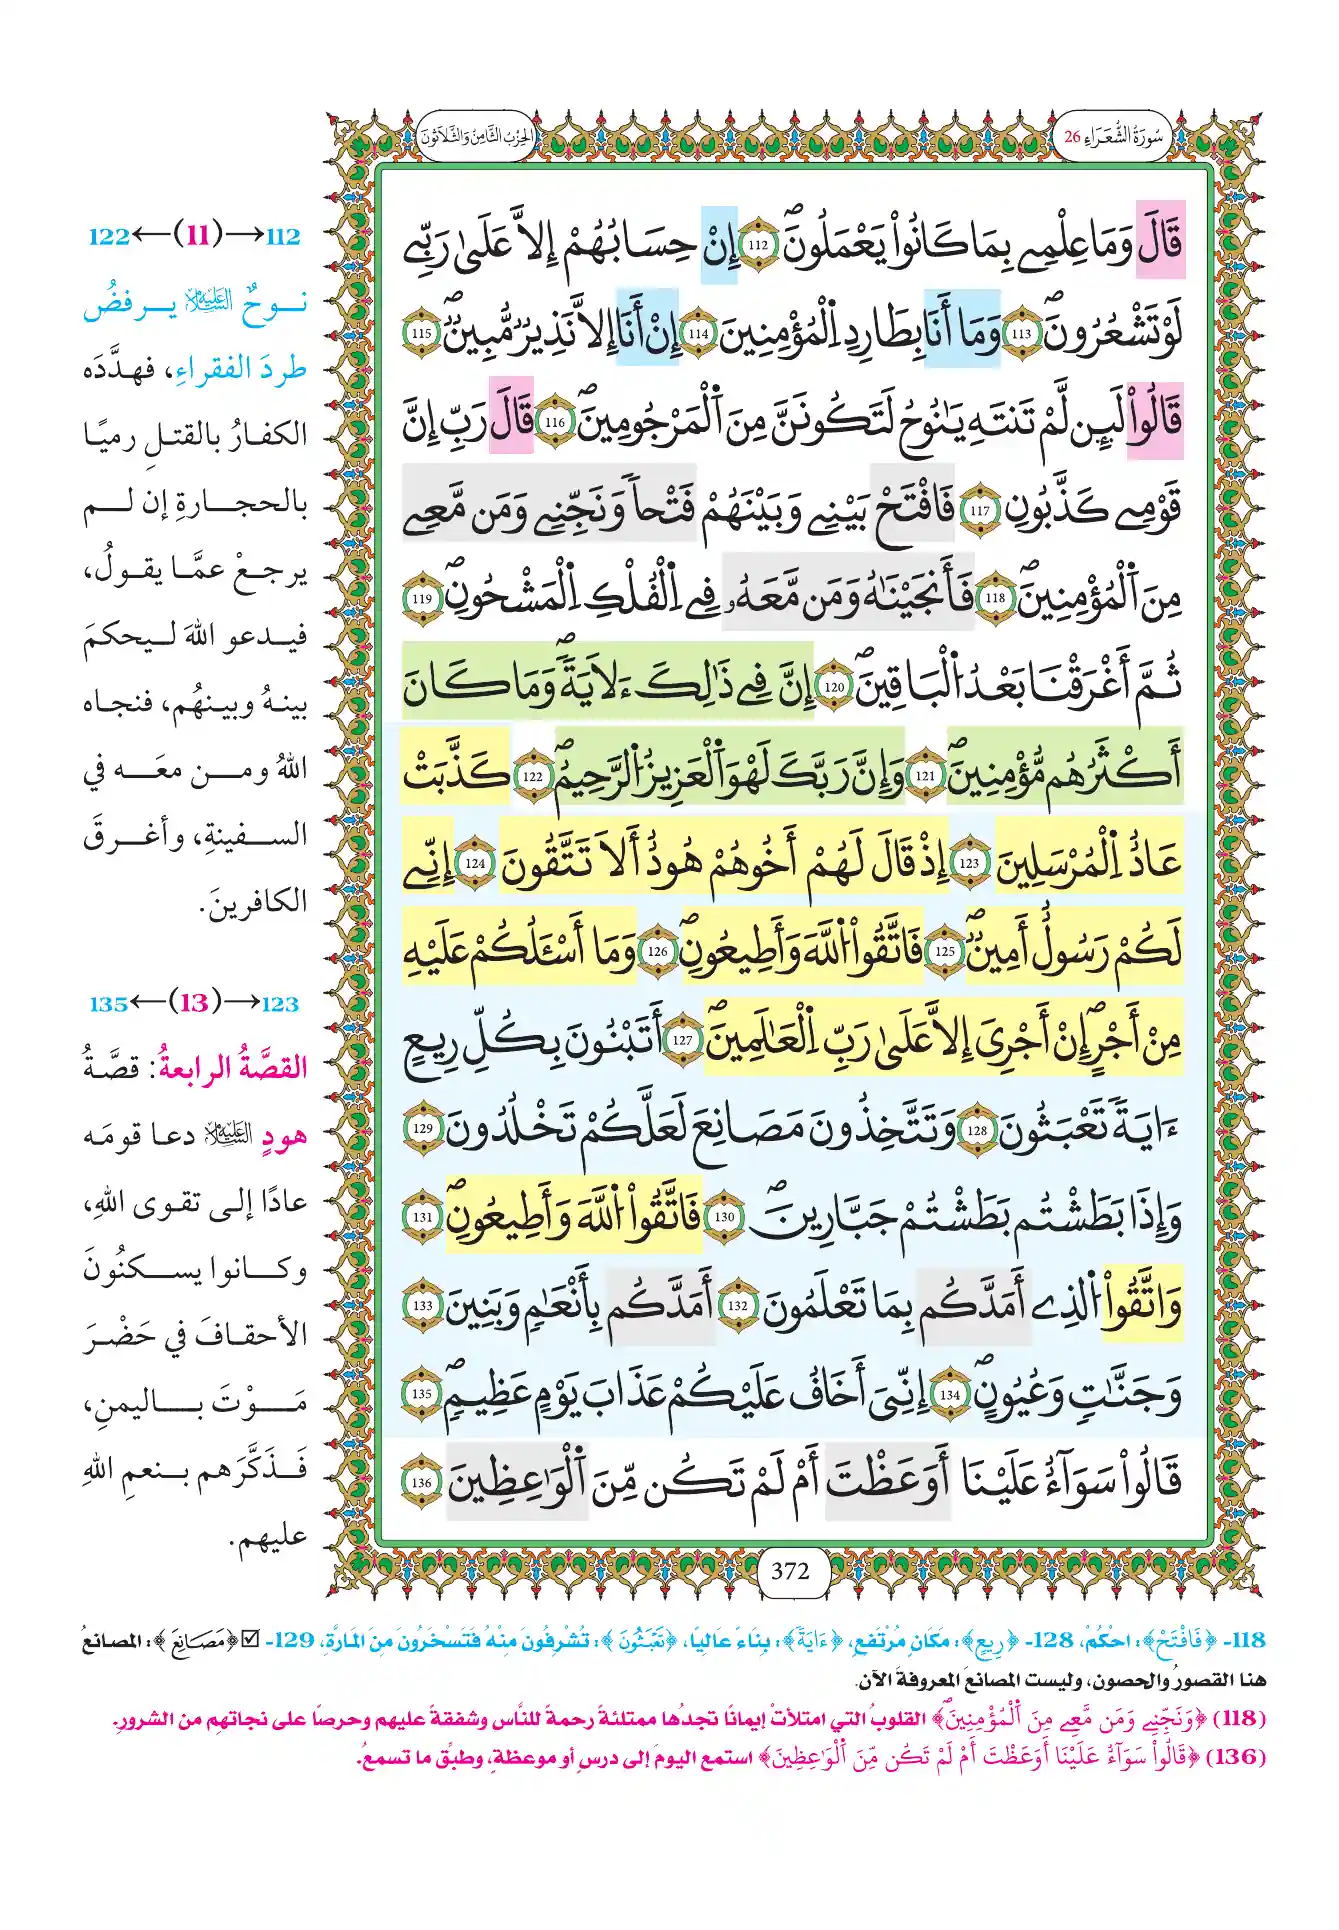 سُورَةُ الشُّعَرَاءِ 26
الحِزْبُ الثَّامِنُ وَالثَّلَاثُونَ
قَالَ وَمَا عِلْمِے بِمَا كَانُواْ يَعْمَلُونَۖ 112 إِنْ حِسَابُهُمْ إِلَّا عَلَىٰ رَبِّے
لَوْ تَشْعُرُونَۖ 113 وَمَا أَنَا بِطَارِدِ اِ۬لْمُؤْمِنِينَ 114 إِنْ أَنَا إِلَّا نَذِيرٞ مُّبِينٞۖ 115
قَالُواْ لَئِن لَّمْ تَنتَهِ يَٰنُوحُ لَتَكُونَنَّ مِنَ اَ۬لْمَرْجُومِينَۖ 116 قَالَ رَبِّ إِنَّ
قَوْمِے كَذَّبُونِ 117 فَافْتَحْ بَيْنِے وَبَيْنَهُمْ فَتْحاٗ وَنَجِّنِے وَمَن مَّعِے
مِنَ اَ۬لْمُؤْمِنِينَۖ 118 فَأَنجَيْنَٰهُ وَمَن مَّعَهُۥ فِے اِ۬لْفُلْكِ اِ۬لْمَشْحُونِۖ 119
ثُمَّ أَغْرَقْنَا بَعْدُ اُ۬لْبَاقِينَۖ 120 إِنَّ فِے ذَٰلِكَ ءَلَايَةٗۖ وَمَا كَانَ
أَكْثَرُهُم مُّؤْمِنِينَۖ 121 وَإِنَّ رَبَّكَ لَهُوَ اَ۬لْعَزِيزُ اُ۬لرَّحِيمُۖ 122 كَذَّبَتْ
عَادٌ اِ۬لْمُرْسَلِينَ 123 إِذْ قَالَ لَهُمْ أَخُوهُمْ هُودٌ أَلَا تَتَّقُونَ 124 إِنِّے
لَكُمْ رَسُولٌ أَمِينٞۖ 125 فَاتَّقُواْ اُ۬للَّهَ وَأَطِيعُونِۖ 126 وَمَا أَسْـَٔلُكُمْ عَلَيْهِ
مِنْ أَجْرٍۖ إِنْ أَجْرِيَ إِلَّا عَلَىٰ رَبِّ اِ۬لْعَٰلَمِينَۖ 127 أَتَبْنُونَ بِكُلِّ رِيعٍ
ءَايَةٗ تَعْبَثُونَ 128 وَتَتَّخِذُونَ مَصَانِعَ لَعَلَّكُمْ تَخْلُدُونَ 129
وَإِذَا بَطَشْتُم بَطَشْتُمْ جَبَّارِينَۖ 130 فَاتَّقُواْ اُ۬للَّهَ وَأَطِيعُونِۖ 131
وَاتَّقُواْ اُ۬لذِے أَمَدَّكُم بِمَا تَعْلَمُونَ 132 أَمَدَّكُم بِأَنْعَٰمٖ وَبَنِينَ 133
وَجَنَّٰتٖ وَعُيُونٍۖ 134 إِنِّيَ أَخَافُ عَلَيْكُمْ عَذَابَ يَوْمٍ عَظِيمٖۖ 135
قَالُواْ سَوَآءٌ عَلَيْنَا أَوَعَظْتَ أَمْ لَمْ تَكُن مِّنَ اَ۬لْوَٰعِظِينَ 136
372
112→(11)←122
نوحٌ عليه السلام يرفضُ
طردَ الفقراءِ، فهدَّدَه
الكفارُ بالقتلِ رميًا
بالحجارةِ إن لم
يرجعْ عمَّا يقولُ،
فيدعو اللهَ ليحكمَ
بينهُ وبينهُم، فنجاه
اللهُ ومن معَه في
السفينةِ، وأغرقَ
الكافرينَ.
123→(13)←135
القصَّةُ الرابعةُ: قصَّةُ
هودٍ عليه السلام دعا قومَه
عادًا إلى تقوى اللهِ،
وكانوا يسكنُونَ
الأحقافَ في حَضْرَ
مَوْتَ باليمنِ،
فذَكَّرَهم بنعمِ اللهِ
عليهم.
118- ﴿فَافْتَحْ﴾: احْكُمْ، 128- ﴿رِيعٍ﴾: مَكَانٍ مُرْتَفِعٍ، ﴿ءَايَةٗ﴾: بِنَاءً عَالِيًا، ﴿تَعْبَثُونَ﴾: تُشْرِفُونَ مِنْهُ فَتَسْخَرُونَ مِنَ المَارَّةِ، 129- ☑ ﴿مَصَانِعَ﴾: المصانعُ
هنا القصورُ والحصون، وليست المصانعَ المعروفةَ الآن.
(118) ﴿وَنَجِّنِے وَمَن مَّعِے مِنَ اَ۬لْمُؤْمِنِينَۖ﴾ القلوبُ التي امتلأتْ إيمانًا تجدُها ممتلئةً رحمةً للنَّاس وشفقةً عليهم وحرصًا على نجاتهم من الشرورِ.
(136) ﴿قَالُواْ سَوَآءٌ عَلَيْنَا أَوَعَظْتَ أَمْ لَمْ تَكُن مِّنَ اَ۬لْوَٰعِظِينَ﴾ استمع اليومَ إلى درسٍ أو موعظةٍ، وطبِّق ما تسمعُ.